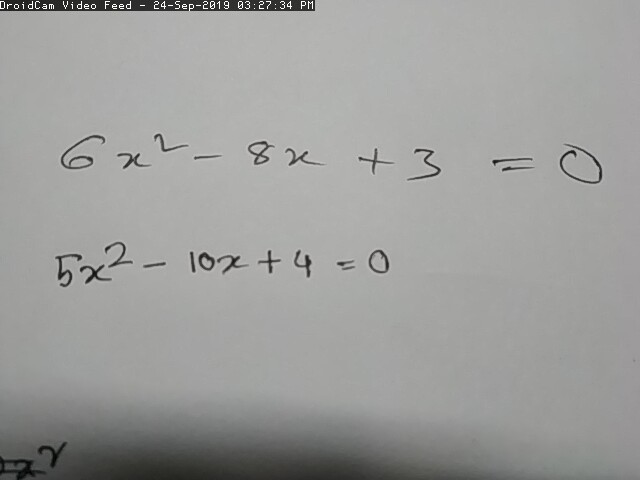 DroidCam Video Feed - 24-Sep-2019 03:27:34 PM
6x² - 8x + 3 = 0
5x² - 10x + 4 = 0